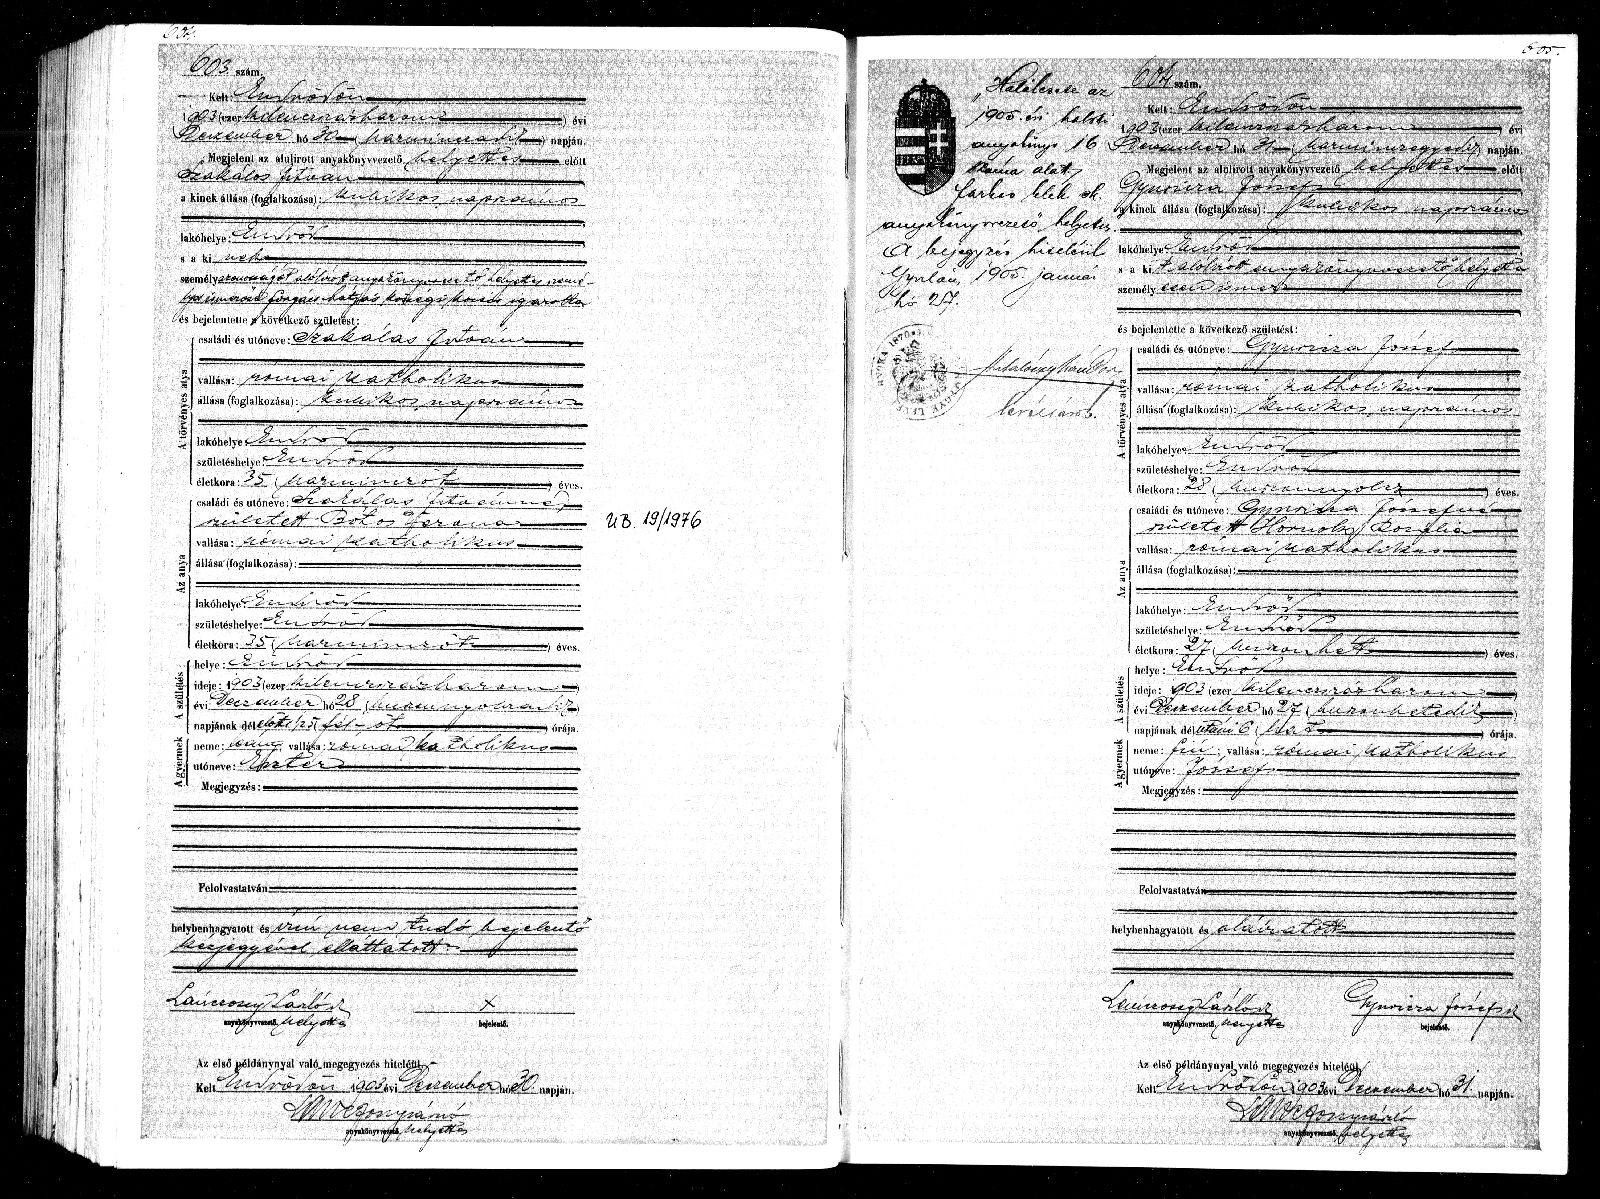 604.
603 szám.
Kelt: Endrődön
1903 (ezer kilenczszázhárom) évi
Deczember hó 30 (harminczadik) napján.
Megjelent az alulirott anyakönyvvezető helyettes előtt
Szakálas István
a kinek állása (foglalkozása): kubikos, napszámos
lakóhelye Endrőd
s a ki
személyazonosságát alólirott anyakönyvvezető helyettes
és bejelentette a következő születést:
A törvényes atya
családi és utóneve: Szakálas István
vallása: római katholikus
állása (foglalkozása): kubikos, napszámos
lakóhelye: Endrőd
születéshelye: Endrőd
életkora: 35 (harminczöt) éves.
Az anya
családi és utóneve: Szakálas Istvánné,
született Botos Terona
vallása: római katholikus
állása (foglalkozása):
lakóhelye Endrőd
születéshelye: Endrőd
életkora: 35 (harminczöt) éves.
A születés
helye: Endrőd
ideje: 1903 (ezer kilenczszázhárom)
évi Deczember hó 28 (huszonnyolczadik)
napjának dél előtti (fél öt) órája.
A gyermek
neme: leány vallása: római katholikus
utóneve: Eszter
Megjegyzés:
Felolvastatván
helybenhagyatott és irni nem tudó bejelentő
kézjegyével elláttatott
Lánczossy László x
anyakönyvvezető, helyettes bejelentő.
Az első példánynyal való megegyezés hiteléül
Kelt Endrődön 1903 évi Deczember hó 30. napján.
anyakönyvvezető, helyettes
UB. 19/1976
605.
„Halálesete az
1905. évi haloti
anyakönyv 16
száma alatt
Farkas Elek sk.
anyakönyvvezető helyettes.
A bejegyzés hiteléül
Gyulán, 1905. január
hó 27.
levéltárnok.
604 szám.
Kelt: Endrődön
1903 (ezer kilenczszázhárom) évi
Deczember hó 31 (harminczegyedik) napján.
Megjelent az alulirott anyakönyvvezető helyettes előtt
Gyuricza József
a kinek állása (foglalkozása): kubikos, napszámos
lakóhelye Endrőd
s a ki t alólirott anyakönyvvezető helyettes
személyesen ismer
és bejelentette a következő születést:
A törvényes atya
családi és utóneve: Gyuricza József
vallása: római katholikus
állása (foglalkozása): kubikos, napszámos
lakóhelye: Endrőd
születéshelye: Endrőd
életkora: 28 (huszonnyolcz) éves.
Az anya
családi és utóneve: Gyuricza Józsefné
született Hornok Rozália
vallása: római katholikus
állása (foglalkozása):
lakóhelye: Endrőd
születéshelye: Endrőd
életkora: 27 (huszonhét) éves.
A születés
helye: Endrőd
ideje: 1903 (ezer kilenczszázhárom)
évi Deczember hó 27 (huszonhetedik)
napjának dél utáni 6 (hat) órája.
A gyermek
neme: fiú; vallása: római katholikus
utóneve: József
Megjegyzés:
Felolvastatván
helybenhagyatott és aláiratott
Lánczossy László Gyuricza József
anyakönyvvezető, helyettes bejelentő.
Az első példánynyal való megegyezés hiteléül
Kelt Endrődön 1903 évi Deczember hó 31. napján.
anyakönyvvezető, helyettes